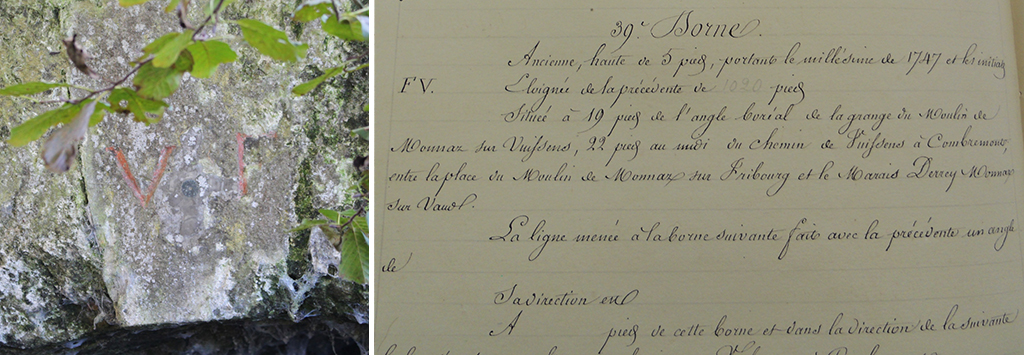 V F
39.e Borne.
Ancienne, haute de 5 pieds, portant le millésime de 1747 et les initiales
F V. Eloignée de la précédente de 1090 pieds
Située à 19 pieds de l'angle boréal de la grange du Moulin de
Monnaz sur Vuissens, 22 pieds au midi du chemin de Vuissens à Combremont,
entre la place du Moulin de Monnaz sur Fribourg et le Marais Derrey Monnaz
sur Vaud.
La ligne menée à la borne suivante fait avec la précédente un angle
de
Sa direction est
A pieds de cette borne et dans la direction de la suivante